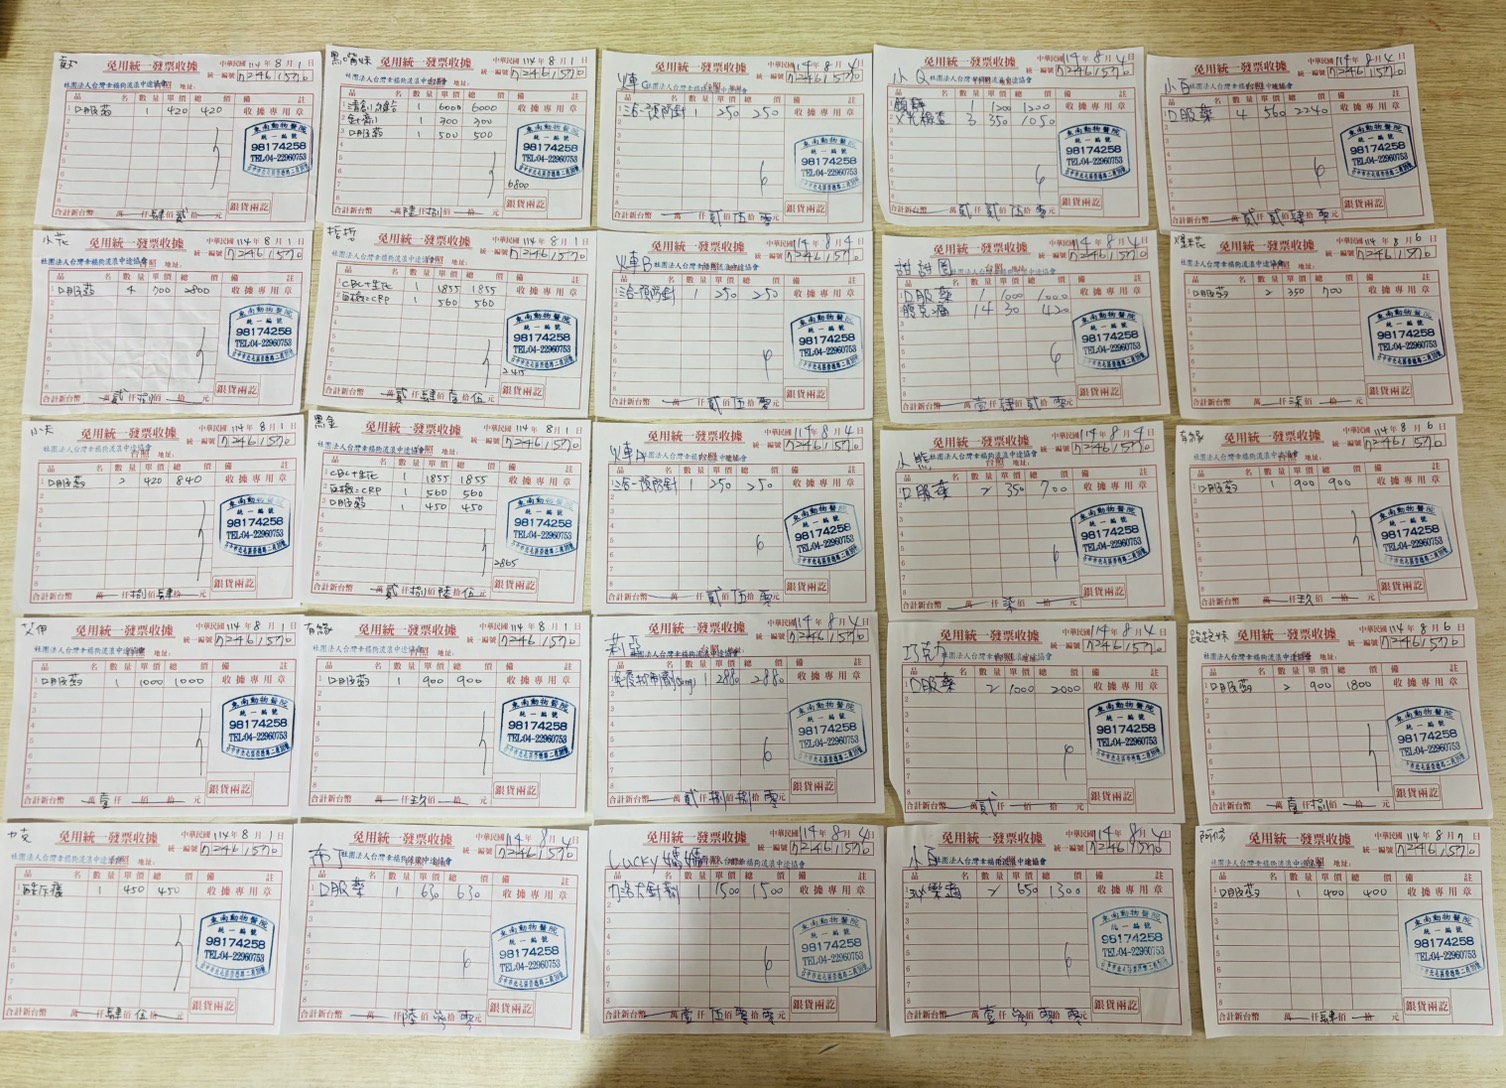 免用統一發票收據
中華民國114年8月1日
統一編號 72461570
社團法人台灣幸福狗流浪中途協會 台照 地址:
品 名 數量 單價 總價 備 註
口服葯 1 420 420 收據專用章
東南動物醫院
統一編號
98174258
TEL:04-22960753
銀貨兩訖
合計新台幣 萬 仟肆佰貳拾 元
黑嘴妹 免用統一發票收據
中華民國114年8月1日
統一編號 72461570
社團法人台灣幸福狗流浪中途協會 台照 地址:
品 名 數量 單價 總價 備 註
清創縫合 1 6000 6000 收據專用章
針劑 1 300 300
口服葯 1 500 500
東南動物醫院
統一編號
98174258
TEL:04-22960753
6800
銀貨兩訖
合計新台幣 萬陸仟捌佰 拾 元
火車C 免用統一發票收據
中華民國114年8月4日
統一編號 72461570
社團法人台灣幸福狗流浪中途協會
品 名 數量 單價 總價 備 註
三合一預防針 1 250 250 收據專用章
東南動物醫院
統一編號
98174258
TEL:04-22960753
銀貨兩訖
合計新台幣 萬 仟貳佰伍拾零元
小Q 免用統一發票收據
中華民國114年8月4日
統一編號 72461570
社團法人台灣幸福狗流浪中途協會
品 名 數量 單價 總價 備 註
鎮靜 1 1200 1200 收據專用章
X光檢查 3 350 1050
東南動物醫院
統一編號
98174258
TEL:04-22960753
銀貨兩訖
合計新台幣 萬貳仟貳佰伍拾零元
小百 免用統一發票收據
中華民國114年8月4日
統一編號 72461570
社團法人台灣幸福狗流浪中途協會
品 名 數量 單價 總價 備 註
口服藥 4 560 2240 收據專用章
東南動物醫院
統一編號
98174258
TEL:04-22960753
銀貨兩訖
合計新台幣 萬貳仟貳佰肆拾零元
小花 免用統一發票收據
中華民國114年8月1日
統一編號 72461570
社團法人台灣幸福狗流浪中途協會 台照 地址:
品 名 數量 單價 總價 備 註
口服葯 4 700 2800 收據專用章
東南動物醫院
統一編號
98174258
TEL:04-22960753
銀貨兩訖
合計新台幣 萬貳仟捌佰 拾 元
哲哲 免用統一發票收據
中華民國114年8月1日
統一編號 72461570
社團法人台灣幸福狗流浪中途協會 台照 地址:
品 名 數量 單價 總價 備 註
CBC+生化 1 1855 1855 收據專用章
血檢:CRP 1 560 560
東南動物醫院
統一編號
98174258
TEL:04-22960753
2415
銀貨兩訖
合計新台幣 萬貳仟肆佰壹拾伍元
火車B 免用統一發票收據
中華民國114年8月4日
統一編號 72461570
社團法人台灣幸福狗流浪中途協會
品 名 數量 單價 總價 備 註
三合一預防針 1 250 250 收據專用章
東南動物醫院
統一編號
98174258
TEL:04-22960753
銀貨兩訖
合計新台幣 萬 仟貳佰伍拾零元
甜甜圈 免用統一發票收據
中華民國114年8月4日
統一編號 72461570
社團法人台灣幸福狗流浪中途協會 台照 地址:
品 名 數量 單價 總價 備 註
口服藥 1 1000 1000 收據專用章
腰克痛 14 30 420
東南動物醫院
統一編號
98174258
TEL:04-22960753
銀貨兩訖
合計新台幣 萬壹仟肆佰貳拾零元
爆米花 免用統一發票收據
中華民國114年8月6日
統一編號 72461570
社團法人台灣幸福狗流浪中途協會 台照 地址:
品 名 數量 單價 總價 備 註
口服葯 2 350 700 收據專用章
東南動物醫院
統一編號
98174258
TEL:04-22960753
銀貨兩訖
合計新台幣 萬 仟柒佰 拾 元
小天 免用統一發票收據
中華民國114年8月1日
統一編號 72461570
社團法人台灣幸福狗流浪中途協會 台照 地址:
品 名 數量 單價 總價 備 註
口服葯 2 420 840 收據專用章
東南動物醫院
統一編號
98174258
TEL:04-22960753
銀貨兩訖
合計新台幣 萬 仟捌佰肆拾 元
黑金 免用統一發票收據
中華民國114年8月1日
統一編號 72461570
社團法人台灣幸福狗流浪中途協會 台照 地址:
品 名 數量 單價 總價 備 註
CBC+生化 1 1855 1855 收據專用章
血檢:CRP 1 560 560
口服葯 1 450 450
東南動物醫院
統一編號
98174258
TEL:04-22960753
2865
銀貨兩訖
合計新台幣 萬貳仟捌佰陸拾伍元
火車A 免用統一發票收據
中華民國114年8月4日
統一編號 72461570
社團法人台灣幸福狗流浪中途協會
品 名 數量 單價 總價 備 註
三合一預防針 1 250 250 收據專用章
東南動物醫院
統一編號
98174258
TEL:04-22960753
銀貨兩訖
合計新台幣 萬 仟貳佰伍拾零元
小熊 免用統一發票收據
中華民國114年8月4日
統一編號 72461570
社團法人台灣幸福狗流浪中途協會 台照 地址:
品 名 數量 單價 總價 備 註
口服藥 2 350 700 收據專用章
東南動物醫院
統一編號
98174258
TEL:04-22960753
銀貨兩訖
合計新台幣 萬 仟柒佰 拾 元
有緣 免用統一發票收據
中華民國114年8月6日
統一編號 72461570
社團法人台灣幸福狗流浪中途協會 台照 地址:
品 名 數量 單價 總價 備 註
口服葯 1 900 900 收據專用章
東南動物醫院
統一編號
98174258
TEL:04-22960753
銀貨兩訖
合計新台幣 萬 仟玖佰 拾 元
艾伊 免用統一發票收據
中華民國114年8月1日
統一編號 72461570
社團法人台灣幸福狗流浪中途協會 台照 地址:
品 名 數量 單價 總價 備 註
口服葯 1 1000 1000 收據專用章
東南動物醫院
統一編號
98174258
TEL:04-22960753
銀貨兩訖
合計新台幣 萬壹仟 佰 拾 元
有緣 免用統一發票收據
中華民國114年8月1日
統一編號 72461570
社團法人台灣幸福狗流浪中途協會 台照 地址:
品 名 數量 單價 總價 備 註
口服葯 1 900 900 收據專用章
東南動物醫院
統一編號
98174258
TEL:04-22960753
銀貨兩訖
合計新台幣 萬 仟玖佰 拾 元
莉亞 免用統一發票收據
中華民國114年8月4日
統一編號 72461570
社團法人台灣幸福狗流浪中途協會
品 名 數量 單價 總價 備 註
免疫抑制劑 1 2880 2880 收據專用章
東南動物醫院
統一編號
98174258
TEL:04-22960753
銀貨兩訖
合計新台幣 萬貳仟捌佰捌拾零元
巧克力 免用統一發票收據
中華民國114年8月4日
統一編號 72461570
社團法人台灣幸福狗流浪中途協會
品 名 數量 單價 總價 備 註
口服藥 2 1000 2000 收據專用章
東南動物醫院
統一編號
98174258
TEL:04-22960753
銀貨兩訖
合計新台幣 萬貳仟 佰 拾 元
免用統一發票收據
中華民國114年8月6日
統一編號 72461570
社團法人台灣幸福狗流浪中途協會 台照 地址:
品 名 數量 單價 總價 備 註
口服葯 2 900 1800 收據專用章
東南動物醫院
統一編號
98174258
TEL:04-22960753
銀貨兩訖
合計新台幣 萬壹仟捌佰 拾 元
免用統一發票收據
中華民國114年8月1日
統一編號 72461570
社團法人台灣幸福狗流浪中途協會 台照 地址:
品 名 數量 單價 總價 備 註
1 450 450 收據專用章
東南動物醫院
統一編號
98174258
TEL:04-22960753
銀貨兩訖
合計新台幣 萬 仟肆佰伍拾 元
布丁 免用統一發票收據
中華民國114年8月4日
統一編號 72461570
社團法人台灣幸福狗流浪中途協會
品 名 數量 單價 總價 備 註
口服藥 1 630 630 收據專用章
東南動物醫院
統一編號
98174258
TEL:04-22960753
銀貨兩訖
合計新台幣 萬 仟陸佰參拾零元
Lucky媽媽 免用統一發票收據
中華民國114年8月4日
統一編號 72461570
社團法人台灣幸福狗流浪中途協會
品 名 數量 單價 總價 備 註
力洛大針劑 1 1500 1500 收據專用章
東南動物醫院
統一編號
98174258
TEL:04-22960753
銀貨兩訖
合計新台幣 萬壹仟伍佰零拾零元
小百 免用統一發票收據
中華民國114年8月4日
統一編號 72461570
社團法人台灣幸福狗流浪中途協會
品 名 數量 單價 總價 備 註
樂適 2 650 1300 收據專用章
東南動物醫院
統一編號
98174258
TEL:04-22960753
銀貨兩訖
合計新台幣 萬壹仟參佰零拾零元
免用統一發票收據
中華民國114年8月7日
統一編號 72461570
社團法人台灣幸福狗流浪中途協會 台照 地址:
品 名 數量 單價 總價 備 註
口服葯 1 400 400 收據專用章
東南動物醫院
統一編號
98174258
TEL:04-22960753
銀貨兩訖
合計新台幣 萬 仟肆佰 拾 元